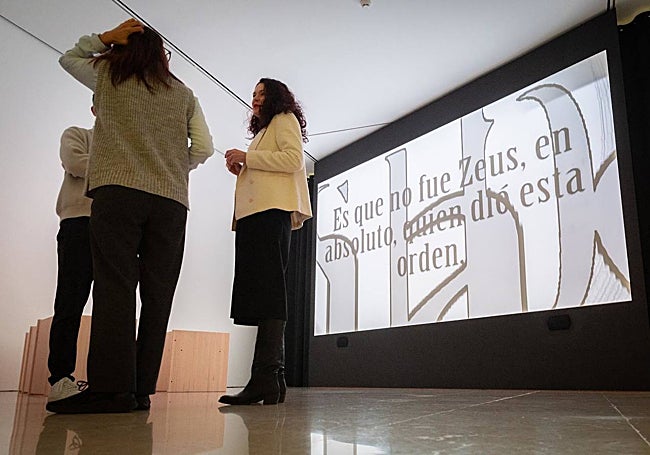 Es que no fue Zeus, en
absoluto, quien dió esta
orden,